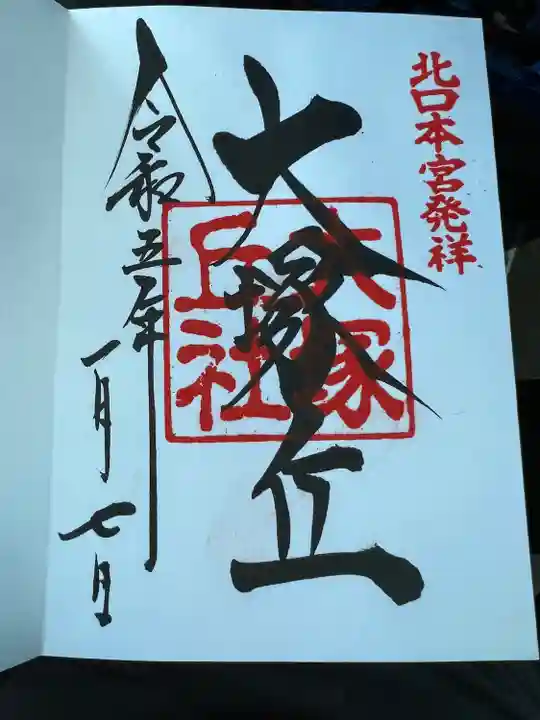 北口本宮発祥
大塚丘
大塚
丘社
令和五年
一月七日